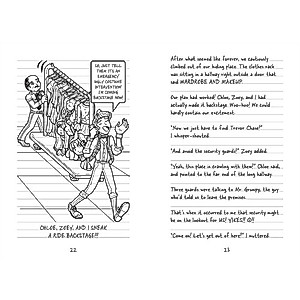 UH, JUST TELL
THEM IT'S AN
EMERGENCY
UGLY COSTUME
INTERVENTION!
I'M COMING
BACKSTAGE NOW!
CHLOE, ZOEY, AND I SNEAK
A RIDE BACKSTAGE!!!
22
After what seemed like forever, we cautiously
climbed out of our hiding place. The clothes rack
was sitting in a hallway right outside a door that
said WARDROBE AND MAKEUP.
Our plan had worked! Chloe, Zoey, and I had
actually made it backstage. Woo-hoo! We could
hardly contain our excitement.
"Now we just have to find Trevor Chase!"
I whisper-shouted.
"And avoid the security guards!" Zoey added.
"Yeah, this place is crawling with them!" Chloe said,
and pointed to the far end of the long hallway.
Three guards were talking to Mr. Grumpy, the guy
who'd told us to leave the premises.
That's when it occurred to me that security might
be on the lookout for US! YIKES!!
"Come on! Let's get out of here!!" I muttered.
23